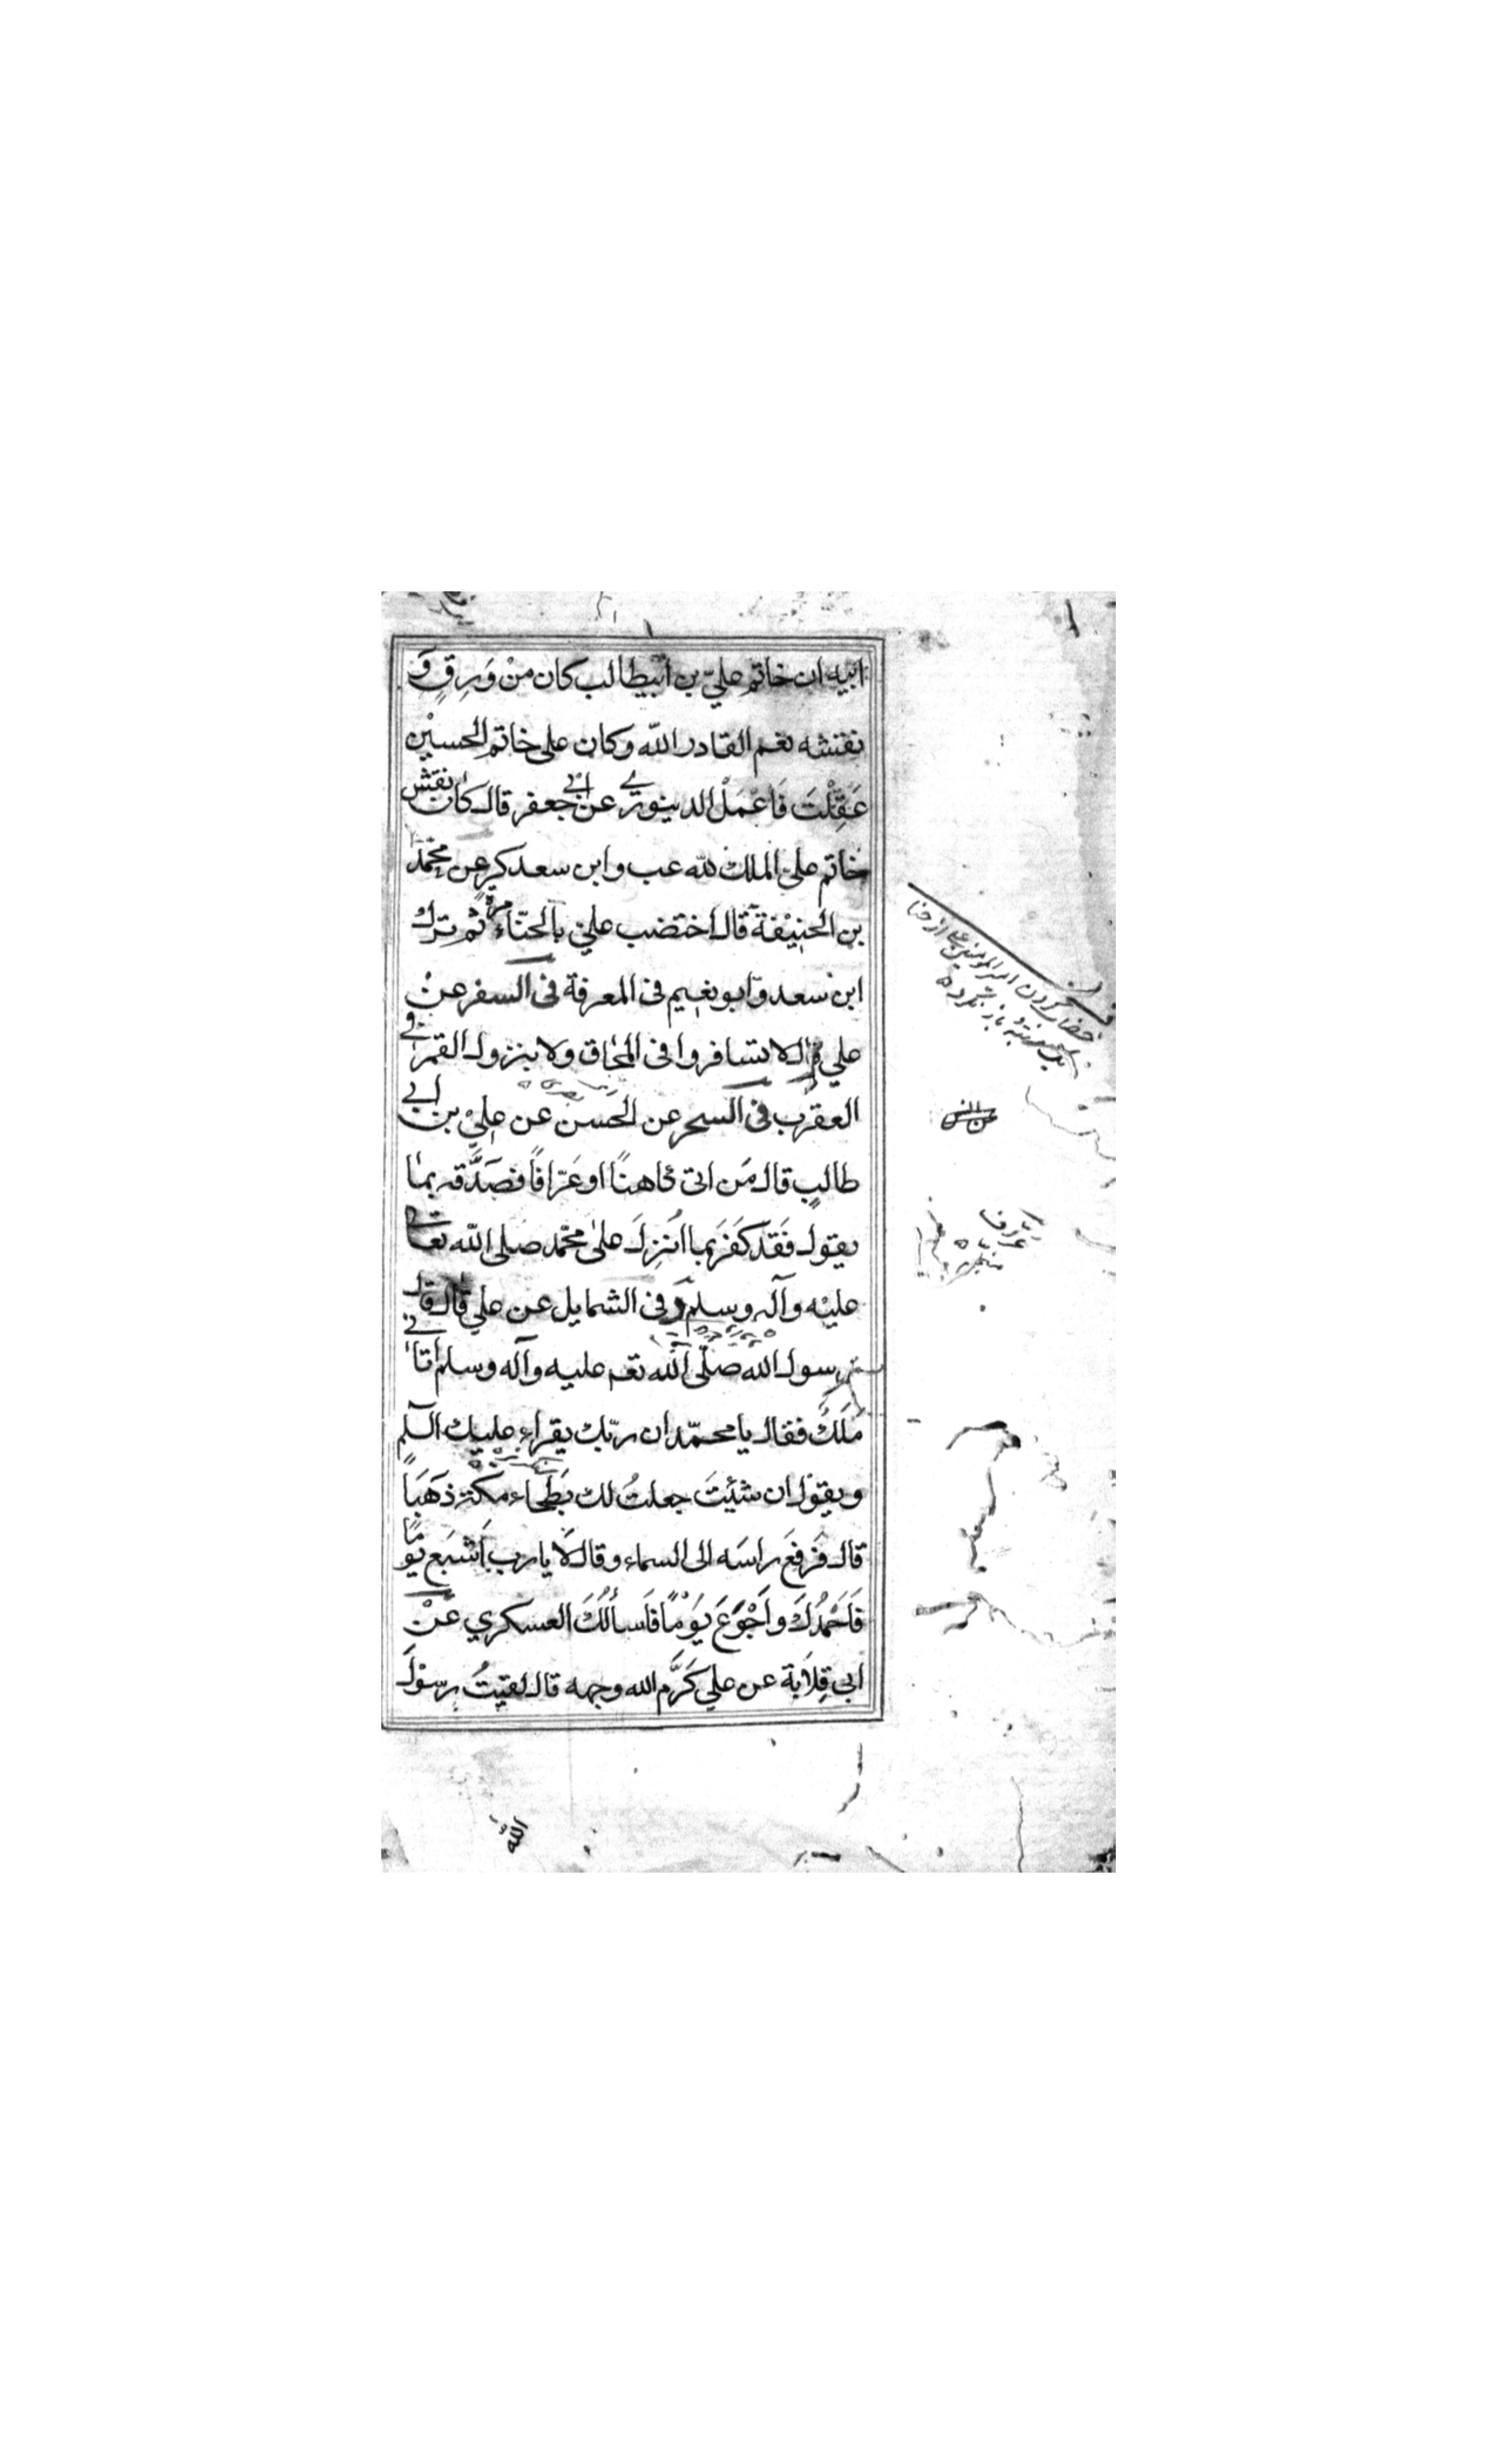 ابيه ان خاتم عليّ بن ابيطالب كان منْ وَرِقٍ وَ
نقشه نعم القادر الله وكان على خاتم الحسيْن
عَقَلْتَ فَاعْمَلْ الدينوري عن ابي جعفر قال كان نقش
خاتم علي الملك لله عب وابن سعد كر عن محمّد
بن الحنيفة قال اختضب علي بالحنّاء مرةً ثم ترك
ابن سعد وابو نعيم فى المعرفة فى السفر عنْ
علي قال لا تسافروا فى المحاق ولا بنزول القمر في
العقرب فى السحر عن الحسن عن علي بن ابي
طالب قال مَن اتى كاهنًا او عَرّافًا فصَدَّقه بما
يقول فَقَد كَفَرَ بما اُنزِلَ علىٰ محمّد صلى الله تعالى
عليْه وآله وسلم وفى الشمايل عن علي قال قال
رسول الله صلّى الله تعم عليه وآله وسلم أتانے
مَلَكٌ فقال يا محمّد ان ربّك يقراء عليك السلم
ويقول ان شئِتَ جعلتُ لك بَطْحاء مكة ذَهَبَاً
قال فَرَفعَ راسَه الى السماء وقال لَا يارب أَشْبَع يوْمًا
فَاَحْمدُكَ واَجُوْعَ يَوْمًا فَاَسألُكَ العسكري عَنْ
ابى قِلَابة عن علي كَرَّم الله وجهه قال لقيتُ رسوْلَ
خضاب كردن امير المومنين ع از حنا
عرّاف
منجّم
الله